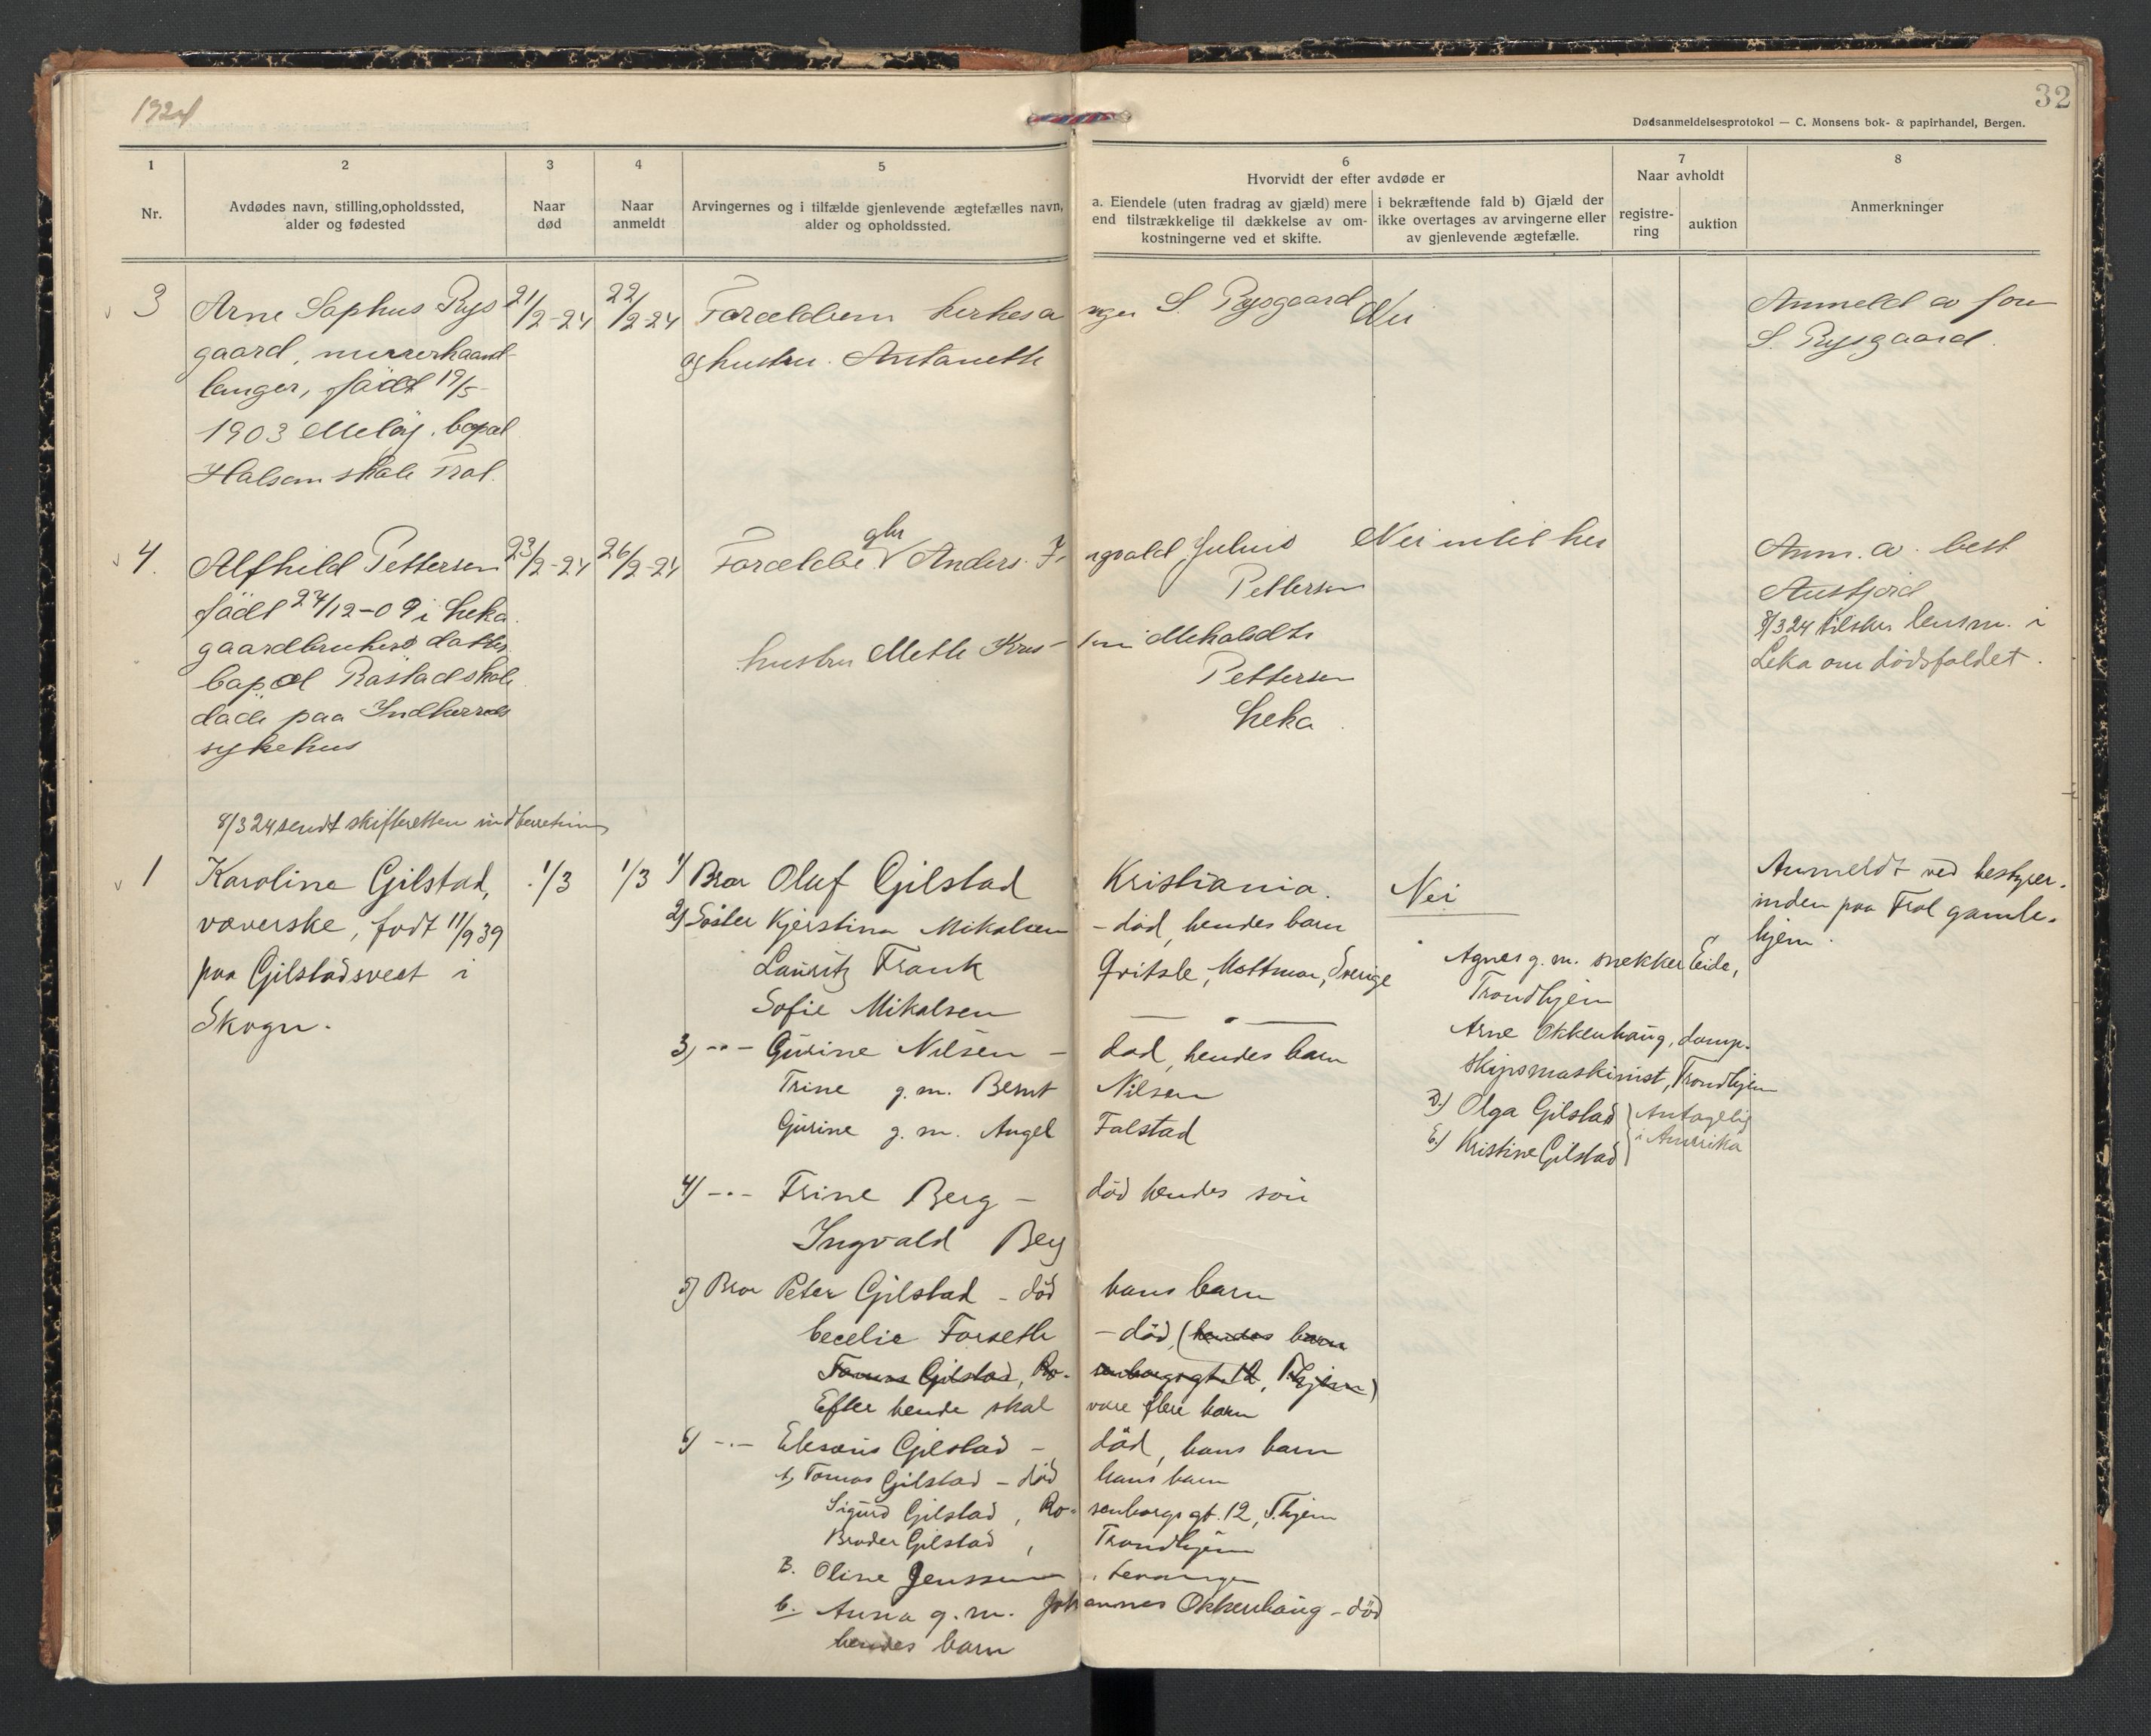 1924
32
Dødsanmeldelsesprotokol — C. Monsens bok- & papirhandel, Bergen.
1
Nr.
2
Avdødes navn, stilling, opholdssted,
alder og fødested
3
Naar
død
4
Naar
anmeldt
5
Arvingernes og i tilfælde gjenlevende ægtefælles navn,
alder og opholdssted.
6
Hvorvidt der efter avdøde er
a. Eiendele (uten fradrag av gjæld) mere
end tilstrækkelige til dækkelse av om-
kostningerne ved et skifte.
i bekræftende fald b) Gjæld der
ikke overtages av arvingerne eller
av gjenlevende ægtefælle.
7
Naar avholdt
registre-
ring
auktion
8
Anmerkninger
3
Arne Sophus Rys
gaard, murerhaand-
langer, födt 19/5-
1903 Melöy. bopæl
Halsan skole Frol.
21/2-24
22/2-24
Forældrene
S. Rysgaard
og hustru. Antanette
Nei
Anmeldt av far
S. Rysgaard.
4.
Alfhild Pettersen
födt 27/12-09 i Leka.
gaardbrukers datter
bopæl Røstad skole
döde paa Indherreds
sykehus
23/2-24
26/2-24
Forældre gbr Anders Ingvald Julius
Pettersen
hustru Mette
Pettersen
Leka.
Nei intil her
Anm. av. best.
Austfjord
8/3 24 tilskr. lensm. i
Leka om dödsfaldet.
8/3 24 sendt skifteretten indberetning
1
Karoline Gilstad,
væverske, født 11/9 39
paa Gilstadsvest i
Skogn.
1/3
1/3
1) Bror Oluf Gilstad Kristiania.
2) Söster Kjerstina Mikalsen - död, hendes barn
Lauritz Frank Mikalsen, Sverige
Sofie Mikalsen — " —
3) -"- Gurine Nilsen - död, hendes barn
Trine g. m. Bernt Nilsen
Gurine g. m. Angel Falstad
4) -"- Trine Berg - död hendes sön
Ingvald Berg
5) Bror Peter Gilstad - död hans barn
Cecelie Forseth - död, (hendes barn
Tomas Gilstad, Rosenborggt. 12, Thjem)
Efter hende skal være flere barn
6) -"- Elisæus Gilstad - död, hans barn
A, Tomas Gilstad - död hans barn
Sigurd Gilstad, Rosenborgs gt. 12, T.hjem
Broder Gilstad, Trondhjem
B. Oline Jenssen, Levanger
C. Anna g. m. Johannes Okkenhaug - död
hendes barn
Nei
Agnes g. m. snekker Eide,
Trondhjem
Arne Okkenhaug, damp-
skipsmaskinist, Trondhjem
D.) Olga Gilstad
E.) Kristine Gilstad
Antagelig
i Amerika
Anmeldt ved bestyrer-
inden paa Frol gamle-
hjem.